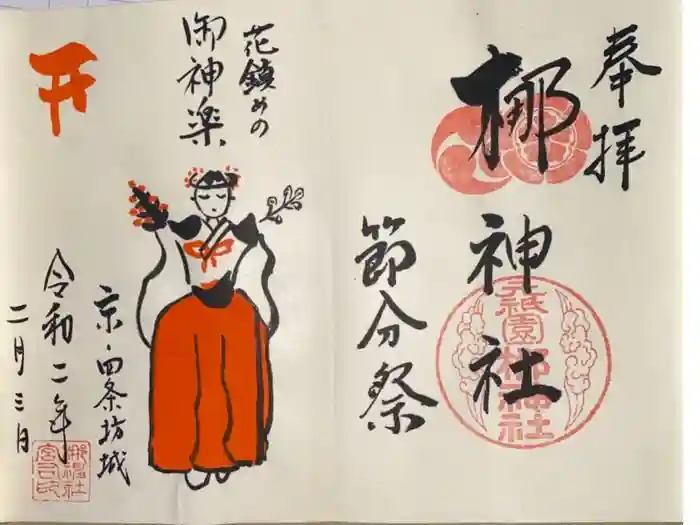 奉拝
梛神社
元祇園
梛神社
節分祭
花鎮めの
御神楽
京・四条坊城
令和二年
二月三日